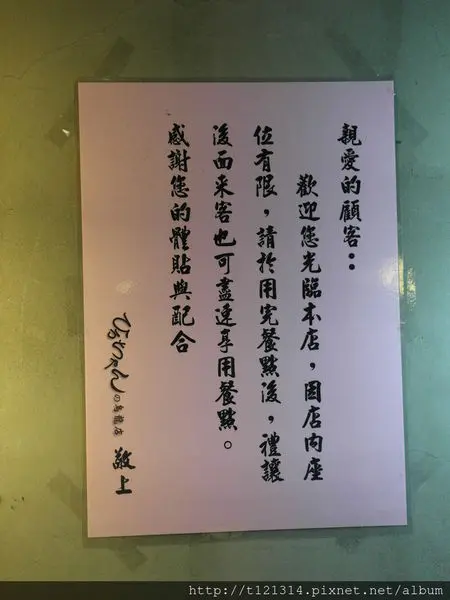 親愛的顧客：
歡迎您光臨本店，因店內座
位有限，請於用完餐點後，禮讓
後面来客也可盡速享用餐點。
感謝您的體貼與配合
ひろちゃんの烏龍店 敬上
http://t121314.pixnet.net/album